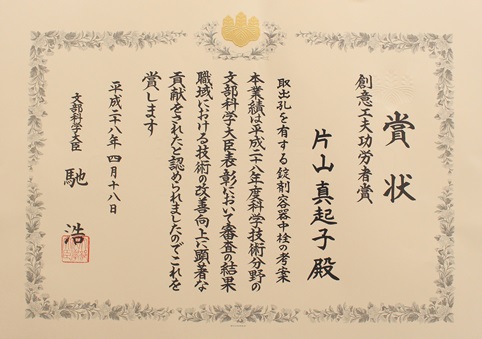 賞状
創意工夫功労者賞
片山真起子殿
取出孔を有する錠剤容器中栓の考案
本業績は平成二十八年度科学技術分野の
文部科学大臣表彰において審査の結果
職域における技術の改善向上に顕著な
貢献をされたと認められましたのでこれを
賞します
平成二十八年四月十八日
文部科学大臣 馳浩